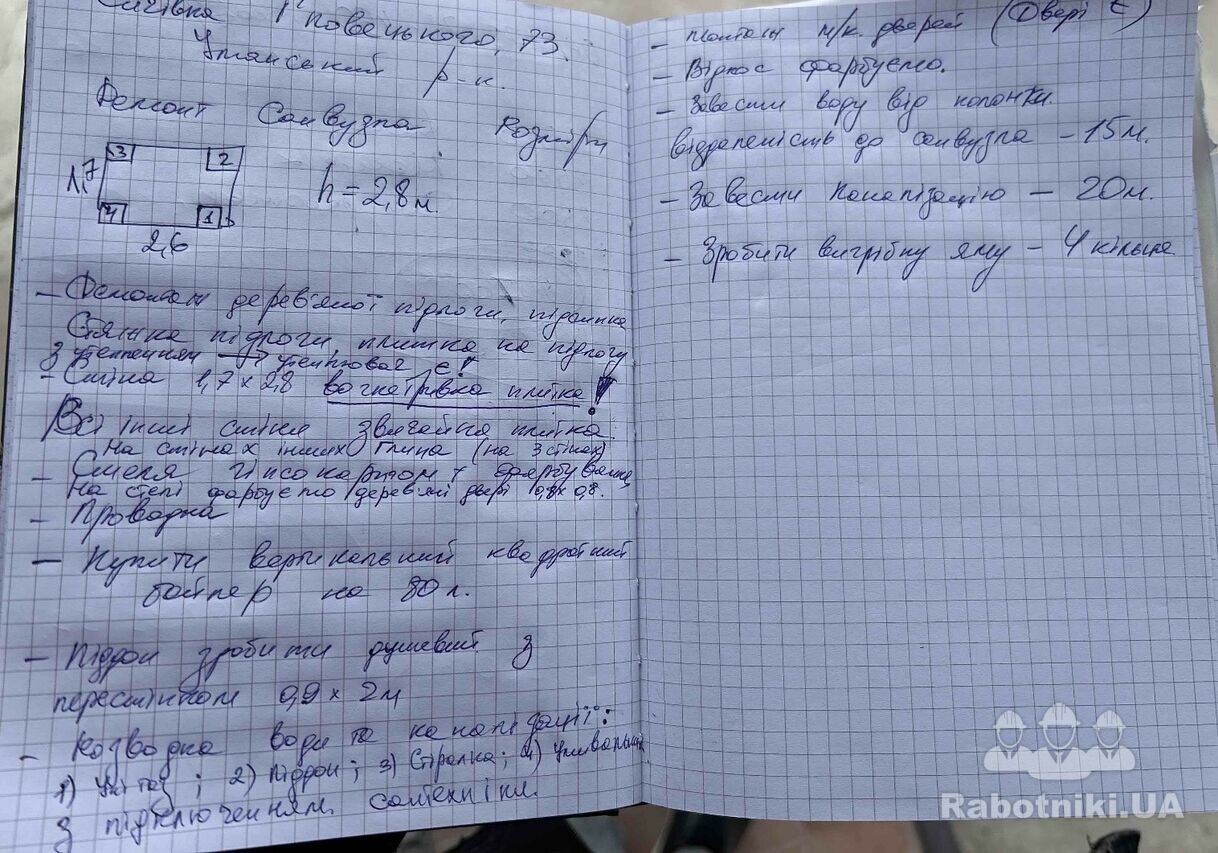 повецького, 73.
Уманський р-н.
Ремонт Санвузла Розміри
3 2
1,7 h = 2,8 м.
4 1
2,6
- Демонтаж дерев'яної підлоги, підсипка
Стяжка підлоги, плитка на підлогу
з утепленням → утеплювач є!
- Стіна 1,7 x 2,8 вогнетривка плитка!
Всі інші стіни звичайна плитка.
На стінах інших глина (на 3 стінах)
- Стеля гіпсокартон + фарбування
На стелі фарбуємо дерев'яні двері 0,8 x 0,8.
- Проводка
- Купити вертикальний квадратний
бойлер на 80 л.
- Піддон зробити душевий з
перестінком 0,9 x 2 м
- Розводка води та каналізації:
1) Унітаз; 2) Піддон; 3) Стіралка; 4) Умивальник
з підключенням сантехніки.
- Монтаж м/к. дверей (Двері Є)
- Відкос фарбуємо.
- Завести воду від колонки.
віддаленість до санвузла - 15 м.
- Завести каналізацію - 20 м.
- Зробити вигрібну яму - 4 кільця.
Rabotniki.UA